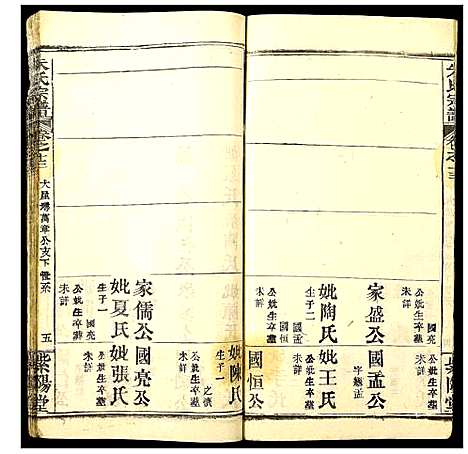 朱氏宗譜
卷之十三
紫陽堂
家盛公
公妣生卒葬
未詳
妣陶氏
生子二
國孟
國恒
公妣生卒葬
未詳
國孟公
字繼孟
妣王氏
公妣生卒葬
未詳
國恒公
妣陳氏
生子一
之儀
公妣生卒葬
未詳
家儒公
妣夏氏
生子一
國亮
公妣生卒葬
未詳
國亮公
妣張氏
公妣生卒葬
未詳
朱氏宗譜
卷之十三
大屋灣萬章公支下世系
五
紫陽堂